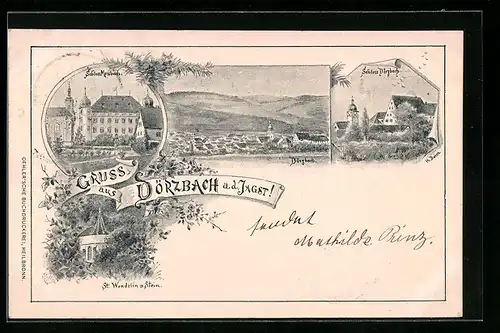 Schloss Messbach.
Schloss Dörzbach.
Dörzbach.
GRUSS
aus
DÖRZBACH a.d. JAGST!
St. Wendelin a. Stein.
GEHLER'SCHE BUCHDRUCKEREI, HEILBRONN
sendet
Mathilde Prinz.